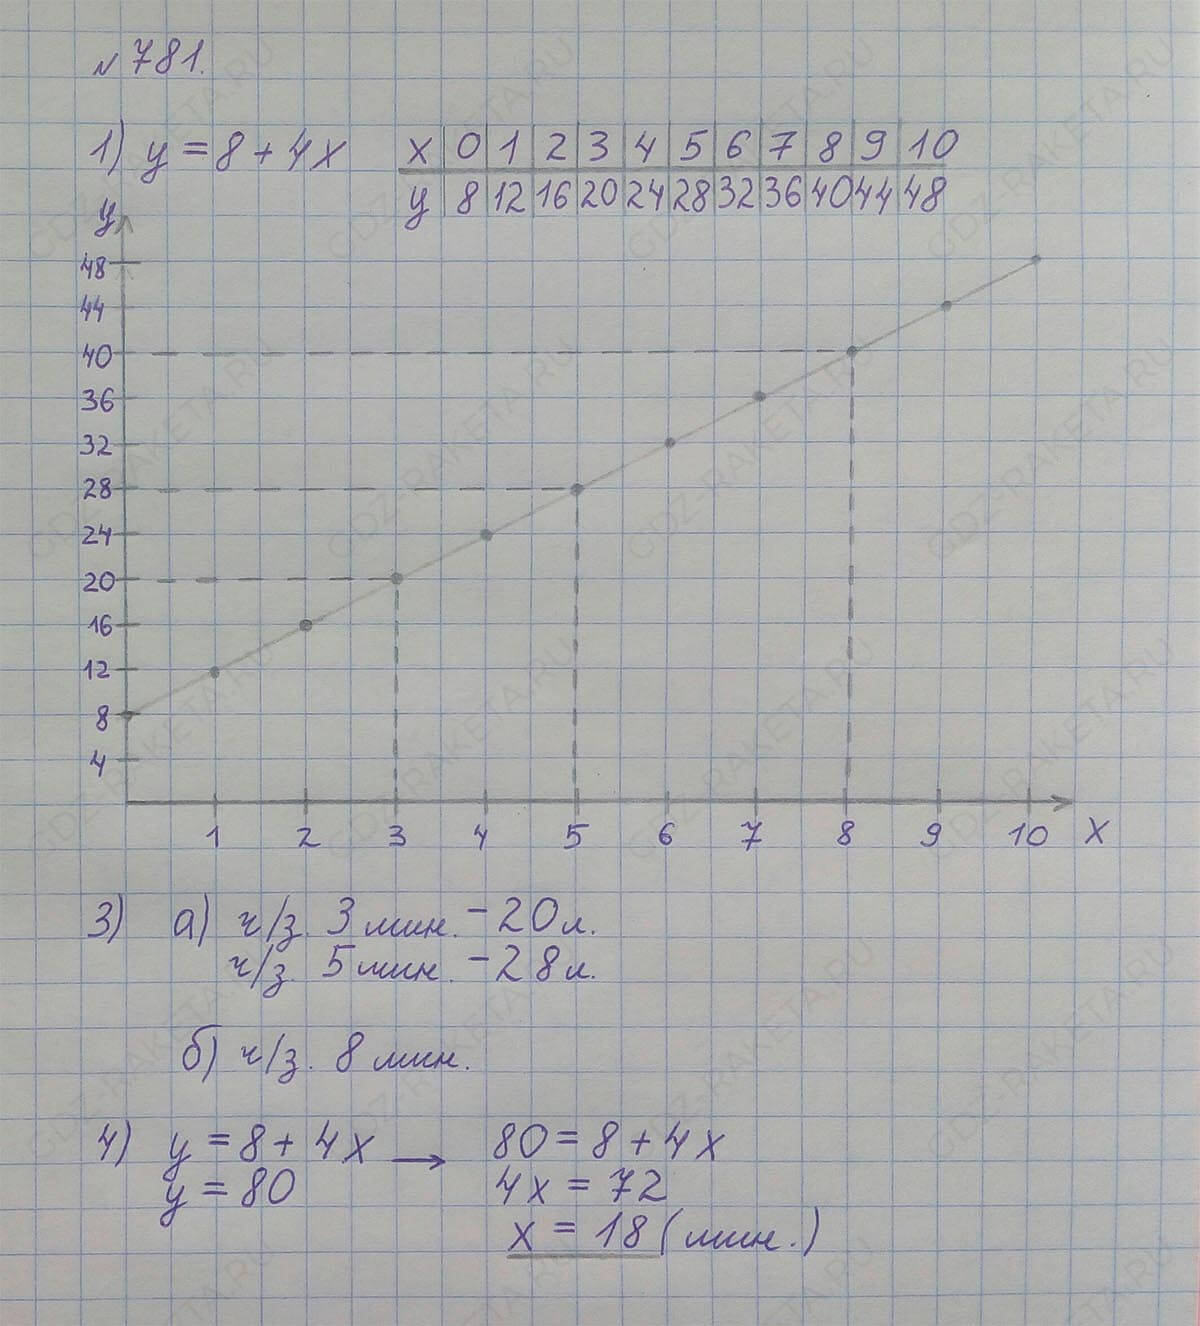 № 781.
1) y = 8 + 4x
x 0 1 2 3 4 5 6 7 8 9 10
y 8 12 16 20 24 28 32 36 40 44 48
y
48
44
40
36
32
28
24
20
16
12
8
4
1 2 3 4 5 6 7 8 9 10 x
3) а) ч/з. 3 мин. - 20 л.
ч/з. 5 мин. - 28 л.
б) ч/з. 8 мин.
4) y = 8 + 4x → 80 = 8 + 4x
y = 80 4x = 72
x = 18 (мин.)
GDZ-RAKETA.RU